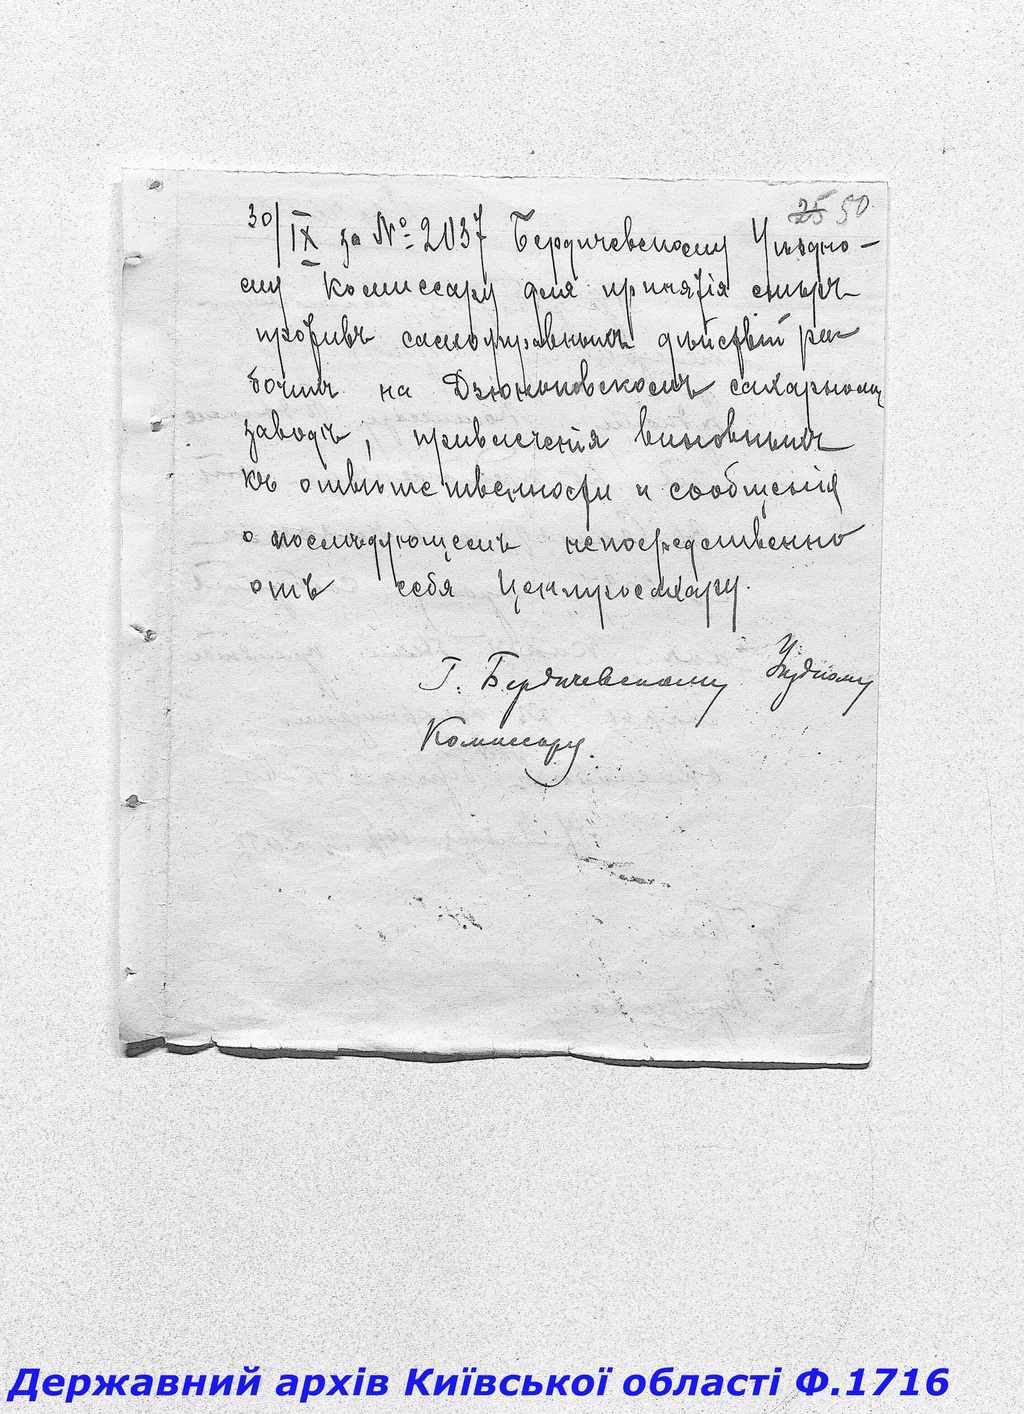 25 50
30/IX за № 2037 Бердичевскому Уѣздно-
му Комиссару для принятія мѣръ
противъ самоуправныхъ дѣйствій ра-
бочихъ на Дзюньковскомъ сахарномъ
заводѣ, привлеченія виновныхъ
къ отвѣтственности и сообщенія
о послѣдующемъ непосредственно
отъ себя Центросахару.
Г. Бердичевскому Уѣздному
Комиссару.
Державний архів Київської області Ф.1716